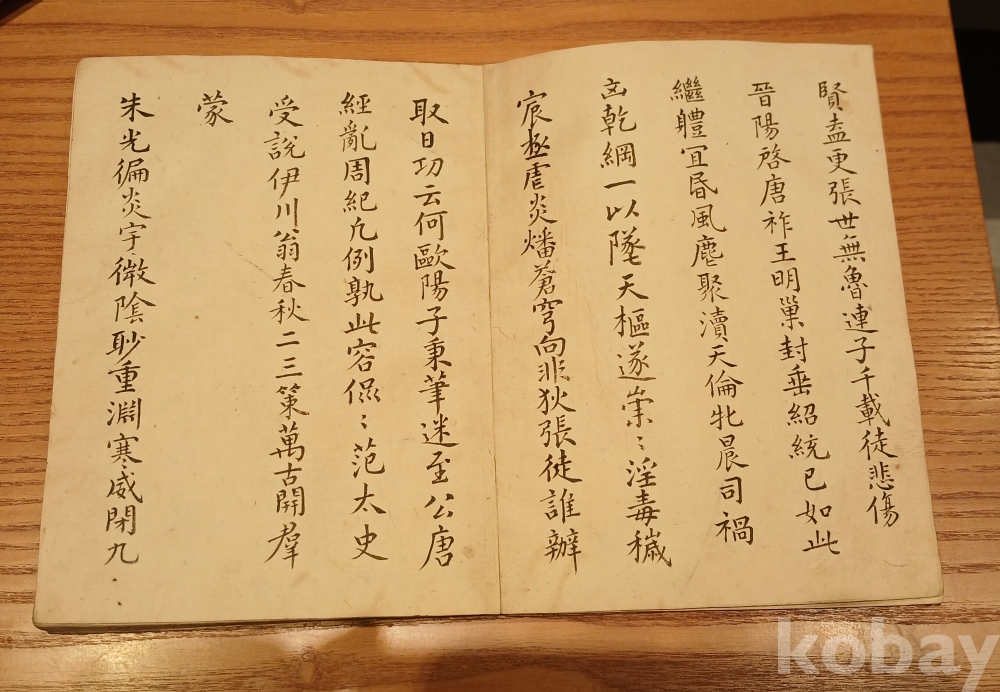 賢盍更張世無魯連子千載徒悲傷
晉陽啓唐祚王明巢封垂紹統已如此
繼體冝昏風麀聚瀆天倫牝晨司禍
凶乾綱一以墜天樞遂崇〻淫毒穢
宸極虐炎燔蒼穹向非狄張徒誰辦
取日功云何歐陽子秉筆迷至公唐
經亂周紀凡例孰此容侃〻范太史
受說伊川翁春秋二三策萬古開羣
蒙
朱光徧炎宇微陰眇重淵寒威閉九
kobay